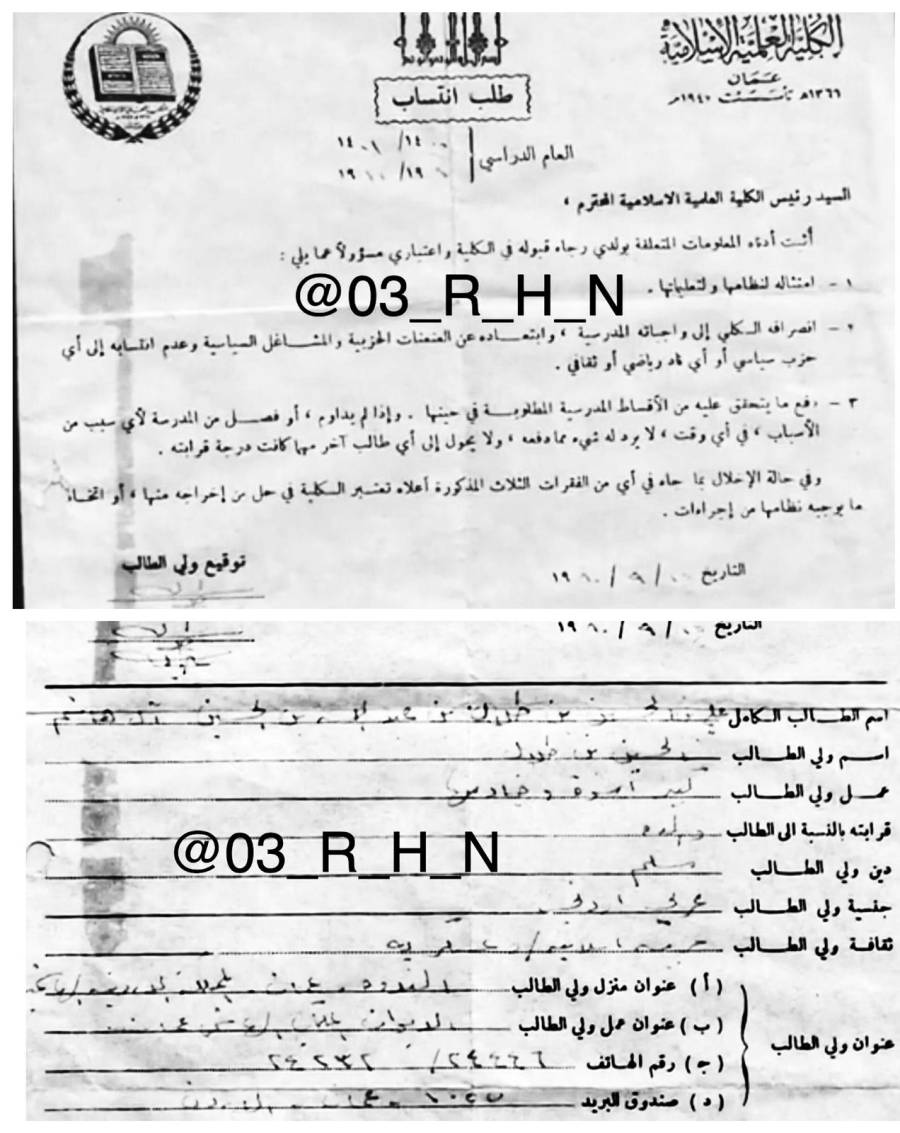 الكلية العلمية الإسلامية
عمان
تأسست ١٣٦٦هـ ١٩٤٧م
طلب انتساب
العام الدراسي ١٤٠٠/ ١٤٠١
١٩٨٠/
السيد رئيس الكلية العلمية الاسلامية المحترم ،
أثبت أدناه المعلومات المتعلقة بولدي رجاء قبوله في الكلية واعتباري مسؤولاً عما يلي :
١ - امتثاله لنظامها ولتعليماتها .
@03_R_H_N
٢ - انصرافه الكلي إلى واجباته المدرسية ، وابتعاده عن العنعنات الحزبية والمشاغل السياسية وعدم انتسابه إلى أي
حزب سياسي أو أي ناد رياضي أو ثقافي .
٣ - دفع ما يتحقق عليه من الأقساط المدرسية المطلوبة في حينها . وإذا لم يداوم ، أو فصل من المدرسة لأي سبب من
الأسباب ، في أي وقت ، لا يرد له شيء مما دفعه ، ولا يحول إلى أي طالب آخر مهما كانت درجة قرابته .
وفي حالة الإخلال بما جاء في أي من الفقرات الثلاث المذكورة أعلاه تعتبر الكلية في حل من إخراجه منها ، أو اتخاذ
ما يوجبه نظامها من إجراءات .
التاريخ / ٩ / ١٩٨٠
توقيع ولي الطالب
التاريخ / ٩ / ١٩٨٠
اسم الطالب الكامل علي بن الحسين بن طلال بن عبد الله بن الحسين آل هاشم
اسم ولي الطالب الحسين بن طلال
عمل ولي الطالب كبير أسرة وخادمها
قرابته بالنسبة الى الطالب والده
@03_R_H_N
دين ولي الطالب مسلم
جنسية ولي الطالب عربي أردني
ثقافة ولي الطالب عربية اسلامية / عسكرية
عنوان ولي الطالب
( أ ) عنوان منزل ولي الطالب
( ب ) عنوان عمل ولي الطالب
( ج ) رقم الهاتف ٢٤٤٤٦ / ٢٤٢٣٢
( د ) صندوق البريد